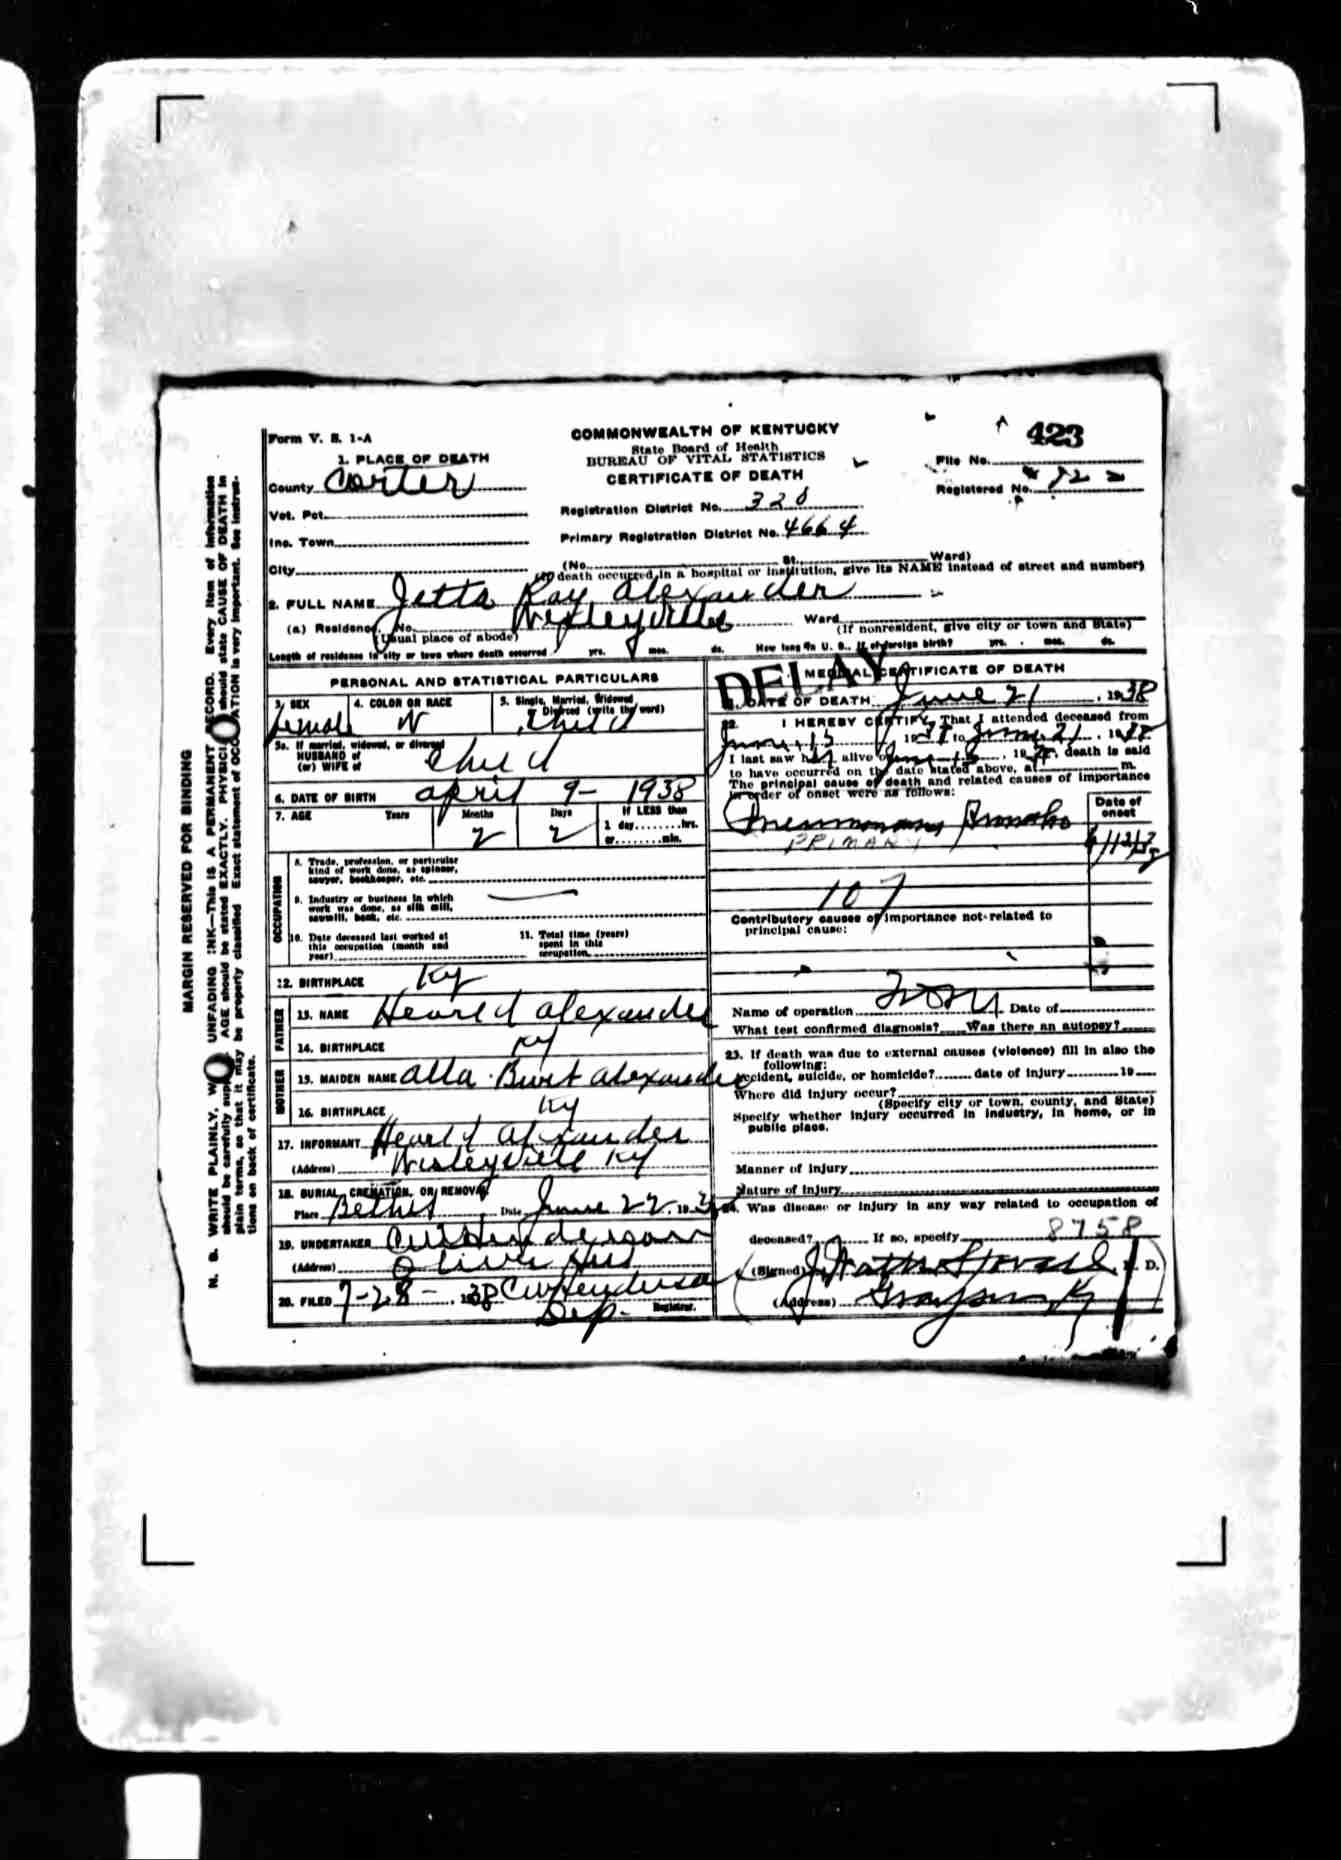 423
Form V. S. 1-A
COMMONWEALTH OF KENTUCKY
State Board of Health
BUREAU OF VITAL STATISTICS
CERTIFICATE OF DEATH
File No.
Registered No.
1. PLACE OF DEATH
County Carter
Vot. Pct.
Inc. Town
City
Registration District No. 328
Primary Registration District No. 4664
(No. St., Ward)
death occurred in a hospital or institution, give its NAME instead of street and number)
2. FULL NAME Jetta Ray Alexander
(a) Residence, No. Wesleyville Ward
(Usual place of abode) (If nonresident, give city or town and State)
Length of residence in city or town where death occurred yrs. mos. ds. How long in U. S., if of foreign birth? yrs. mos. ds.
PERSONAL AND STATISTICAL PARTICULARS
3. SEX 4. COLOR OR RACE 5. Single, Married, Widowed,
Divorced (write the word)
Female W Child
5a. If married, widowed, or divorced
HUSBAND of
(or) WIFE of Child
6. DATE OF BIRTH April 9- 1938
7. AGE Years Months Days If LESS than
1 day hrs.
or min.
2 2
OCCUPATION
8. Trade, profession, or particular
kind of work done, as spinner,
sawyer, bookkeeper, etc.
9. Industry or business in which
work was done, as silk mill,
sawmill, bank, etc.
10. Date deceased last worked at
this occupation (month and
year)
11. Total time (years)
spent in this
occupation
12. BIRTHPLACE Ky
FATHER
13. NAME Alexander
14. BIRTHPLACE Ky
MOTHER
15. MAIDEN NAME Alla Burt Alexander
16. BIRTHPLACE Ky
17. INFORMANT Alexander
(Address) Wesleyville Ky
18. BURIAL, CREMATION, OR REMOVAL
Place Date June 22, 19
19. UNDERTAKER
(Address) Olive Hill
20. FILED 7-28-, 1938
Dep. Registrar.
DELAY
MEDICAL CERTIFICATE OF DEATH
DATE OF DEATH June 21, 1938
22. I HEREBY CERTIFY, That I attended deceased from
June, 15 19 to June 21, 19
I last saw h alive on June 19, death is said
to have occurred on the date stated above, at m.
The principal cause of death and related causes of importance
in order of onset were as follows:
Date of
onset
Broncho
PRIMARY
107
Contributory causes of importance not related to
principal cause:
Name of operation Date of
What test confirmed diagnosis? Was there an autopsy?
23. If death was due to external causes (violence) fill in also the
following:
Accident, suicide, or homicide? date of injury 19
Where did injury occur?
(Specify city or town, county, and State)
Specify whether injury occurred in industry, in home, or in
public place.
Manner of injury
Nature of injury
24. Was disease or injury in any way related to occupation of
deceased? If so, specify 8758
(Signed) J Stovall M. D.
(Address) Grayson Ky
MARGIN RESERVED FOR BINDING
N. B. WRITE PLAINLY, UNFADING INK—THIS IS A PERMANENT RECORD. Every item of information
should be carefully AGE should be stated EXACTLY. PHYSICIANS should state CAUSE OF DEATH in
plain terms, so that it may be properly classified. Exact statement of OCCUPATION is very important. See instruc-
tions on back of certificate.